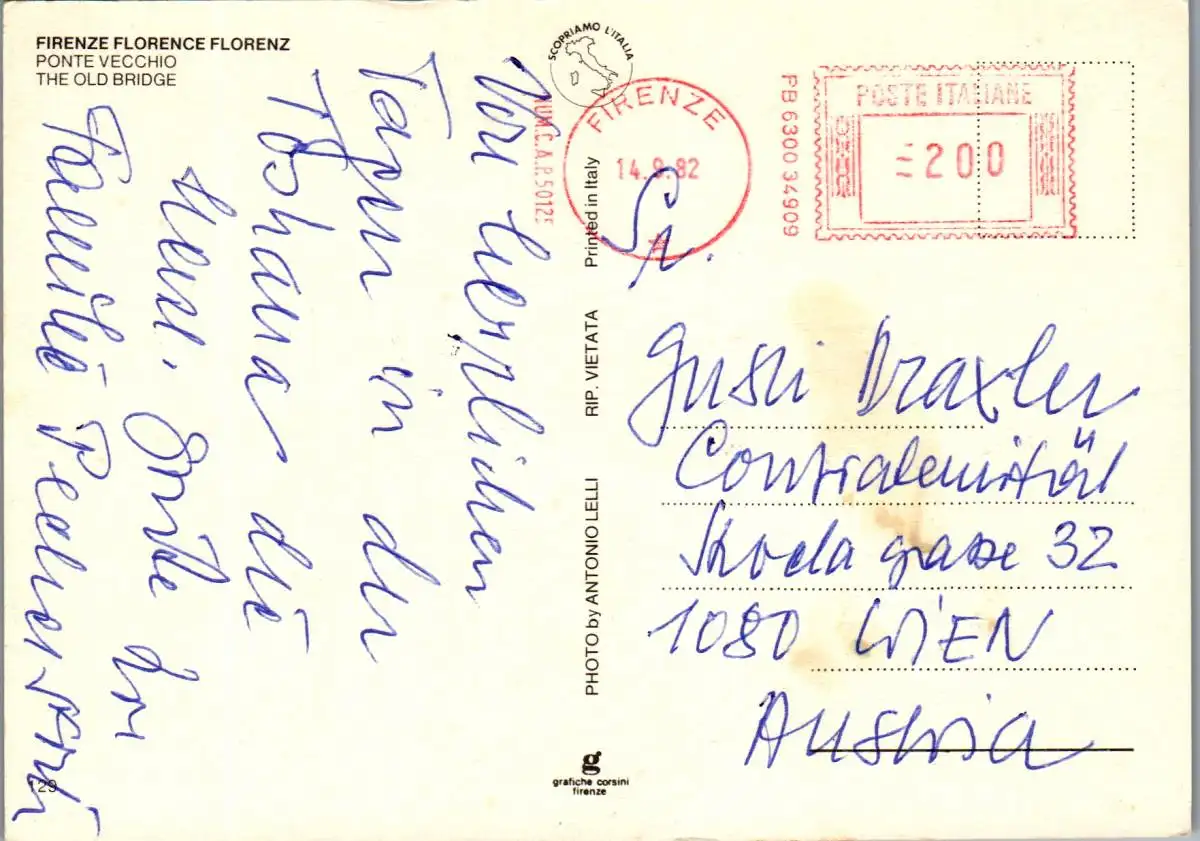 FIRENZE FLORENCE FLORENZ
PONTE VECCHIO
THE OLD BRIDGE
Von herzlichen
Tagen in der
Toskana die
Familie
SCOPRIAMO L'ITALIA
NUM.C.A.P.5012
FIRENZE
14.9.82
PB 6300 34909
POSTE ITALIANE
=200
Printed in Italy
RIP. VIETATA
PHOTO by ANTONIO LELLI
grafiche corsini
firenze
129
Gusti Draxler
Confraternität
Skodagasse 32
1080 WIEN
Austria